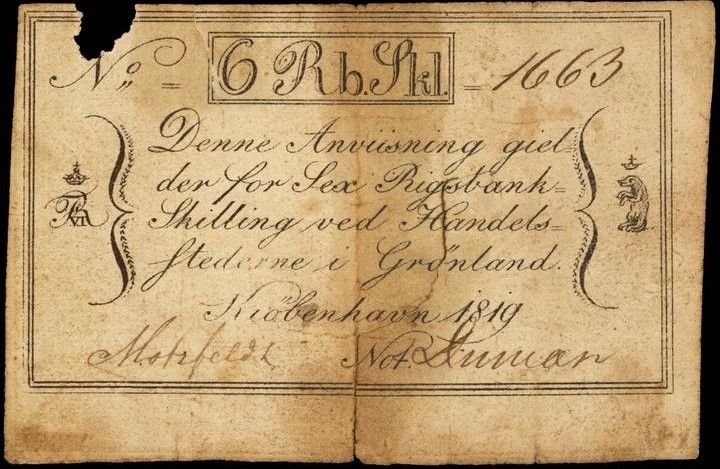 No = 6 Rb. Skl. = 1663
Denne Anviisning giel=
der for Sex Rigsbank=
Skilling ved Handels=
stederne i Grönland.
Kiöbenhavn 1819
Motzfeldt Not.